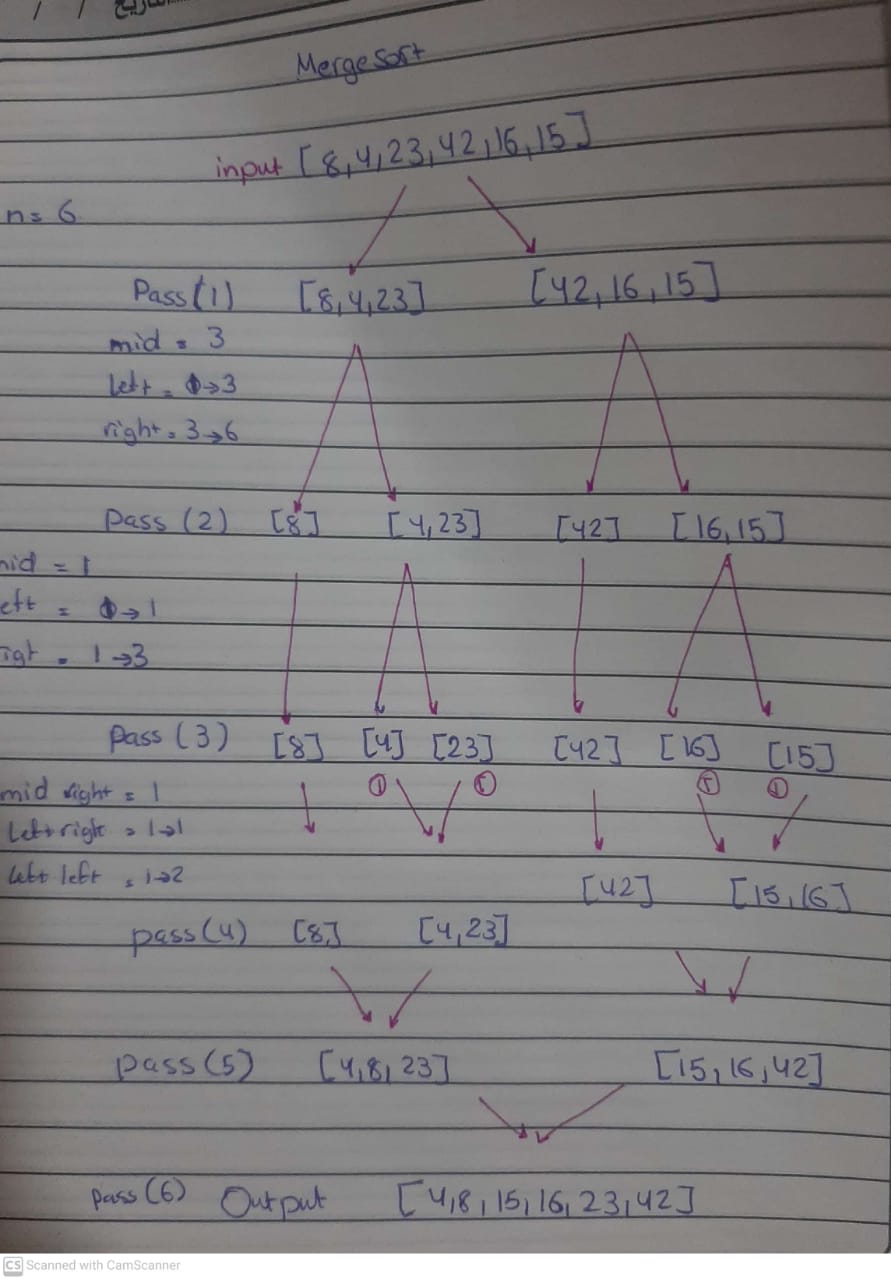 / /
Merge Sort
input [8,4,23,42,16,15]
n = 6
Pass(1) [8,4,23] [42,16,15]
mid = 3
left = 0→3
right = 3→6
Pass (2) [8] [4,23] [42] [16,15]
mid = 1
eft = 0→1
igt = 1→3
Pass (3) [8] [4] [23] [42] [16] [15]
mid right = 1
Left right = 1→1
left left = 1→2
[42] [15,16]
pass(4) [8] [4,23]
pass(5) [4,8,23] [15,16,42]
pass(6) Output [4,8,15,16,23,42]
CS Scanned with CamScanner